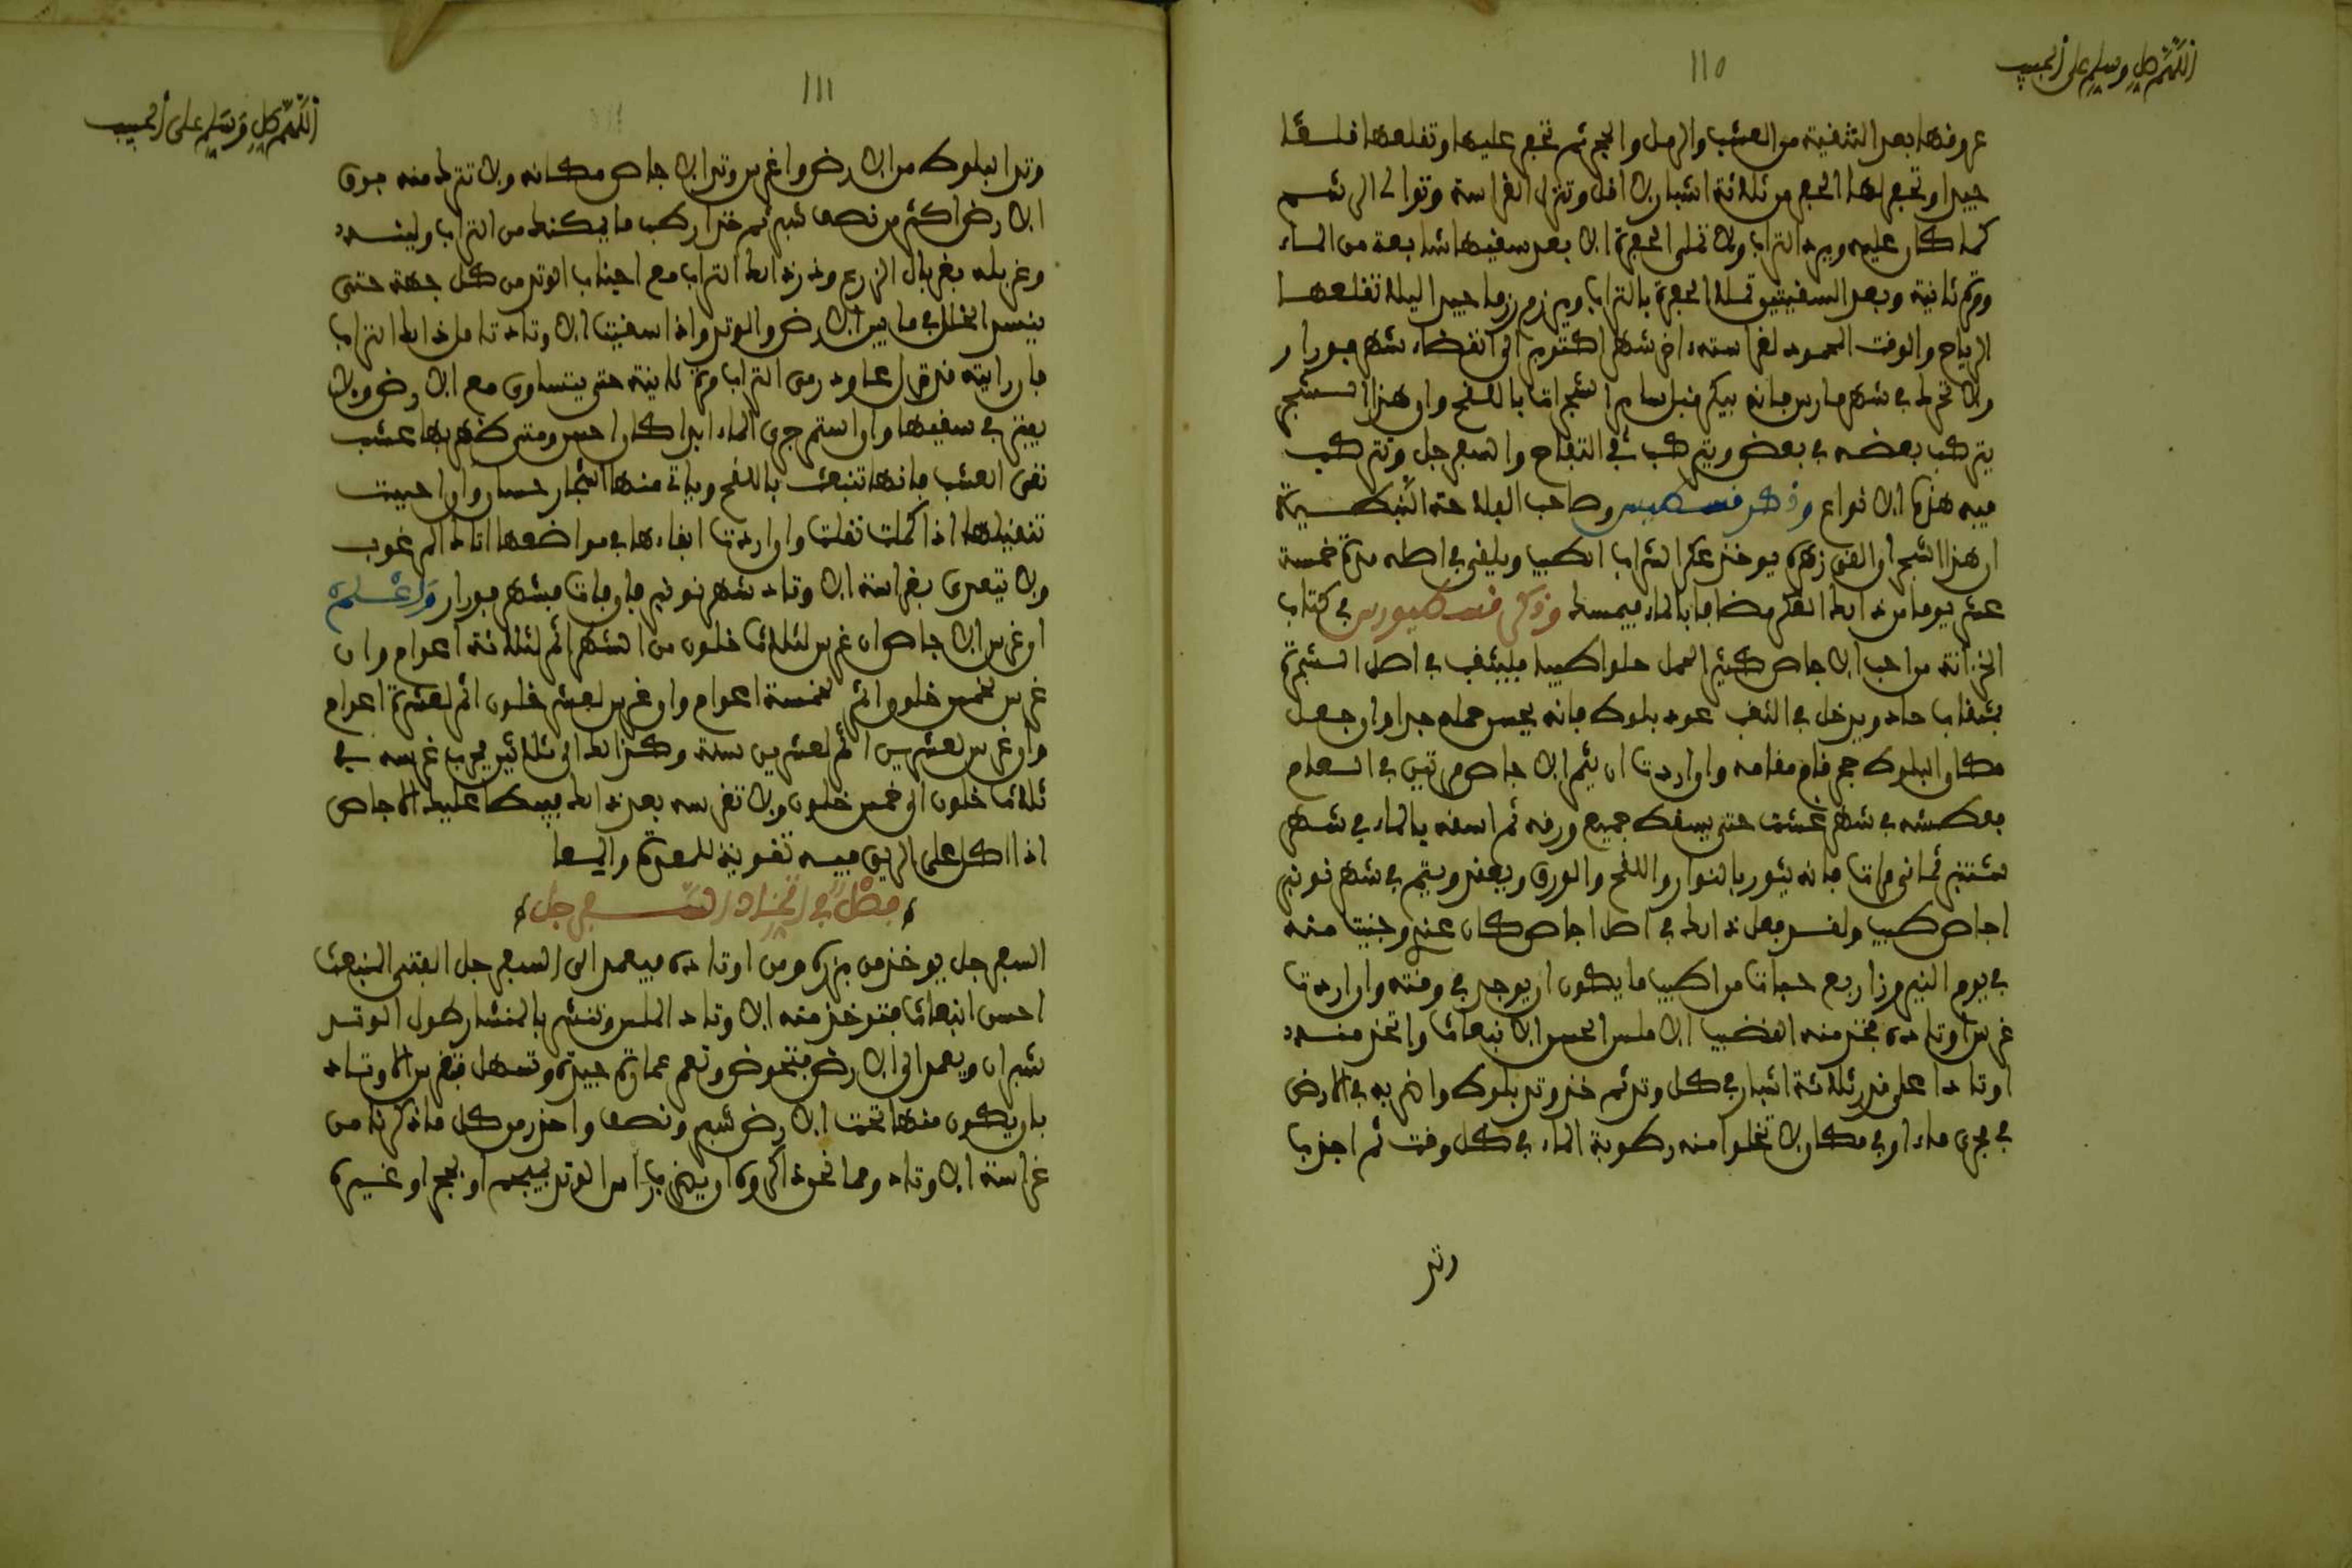 اللهم صل وسلم على الحبيب
110
عروفها بعد التنقية من العشب والرمل والحجر ثم تحفر عليها وتقلعها قلعا
جيدا وتحفر لها الحفر من ثلاثة اشبار لا اقل وتنزل الغراسة وتوالى الى شمس
كما كان عليه ويرد التراب ولا تملى الحفرة الا بعد سقيها شابعة من الماء
ومرة ثانية وبعد السقيتين تملا الحفرة بالتراب ويرزم رزما جيدا ليلا تقلعها
الرياح والوقت المحمود لغراسته اخر شهر اكتوبر الى انقضاء شهر فبرار
ولا تحرك في شهر مارس فانه يبكر قبل ساير الشجرات باللقح وان هذا الشجر
يتركب بعضه في بعض ويتركب في التفاح والسفرجل وتتركب
فيه هذه الانواع وذكر قسطوس وصاحب الفلاحة النبطية
ان هذا الشجر اذا القى زهره يوخذ عكر الشراب الطيب ويلقى في اصله مدة خمسة
عشر يوما من ذلك العكر مضافا بالماء فيمسك وذكر قسطيورس في كتاب
الخزانة من احب الاجاص كثير الحمل حلوا طيبا فليثقب في اصل الشجرة
بثقاب حاد ويدخل في الثقب عود بلوط فانه يحسن حمله جدا وان جعل
مكان البلوط حجر قام مقامه وان اردت ان يثمر الاجاص مرتين في العام
فعطشه في شهر غشت حتى يسقط جميع ورقه ثم اسقه بالماء في شهر
شتنبر ثماني مرات فانه يثور بالنوار واللقح والورق ويعقد ويتم في شهر نونبر
اجاص طيب ولقد فعل ذلك في اصل اجاص كان عندي وجنيت منه
في يوم النيروز اربع حبات من اطيب ما يكون ان يوجد في وقته وان اردت
غرس اوتاده فخذ منه القضيب الاملس الحسن الانبعاث واتخذ منه
اوتادا على قدر ثلاثة اشبار في كل وتد ثم خذ وتد بلوط واضربه في الارض
في مجرى ماء او في مكان لا تخلوا منه رطوبة الماء في كل وقت ثم اجذب
وتد
اللهم صل وسلم على الحبيب
111
وتد البلوط من الارض واغرس وتد الاجاص مكانه ولا تترك منه فوق
الارض اكثر من نصف شبر ثم خذ اطيب ما يمكنك من التراب والينه
وغربله بغربال الزرع وذر ذلك التراب مع اجناب الوتد من كل جهة حتى
ينسد الخلل في ما بين الارض والوتد واذا سقيت الاوتاد تامل ذلك التراب
فان رايته فرق عاود رمى التراب مرة ثانية حتى يتساوى مع الارض ولا
يفتر في سقيها وان استمر جرى الماء ابدا كان احسن ومتى ظهر بها عشب
نقى العشب فانها تنبعث باللقح وياتي منها اشجار حسان وان احببت
تنقيلها اذا كملت نقلت وان اردت ابقاءها في مواضعها اتاك المرغوب
ولا يتعدى بغراسة الاوتاد شهر نونبر فان فات فبشهر فبرار واعلم
ان غرس الاجاص ان غرس لثلاث خلون من الشهر اثمر لثلاثة اعوام وان
غرس لخمس خلون اثمر لخمسة اعوام وان غرس لعشر خلون اثمر لعشرة اعوام
وان غرس لعشرين اثمر لعشرين سنة وكذلك الى ثلاثين فجرب غرسه في
ثلاث خلون الى خمس خلون ولا تغرسه بعد ذلك فيبطا عليك الاجاص
اذا اكل على الريق فيه تقوية للمعدة والمعا
فصل في اتخاذ السفرجل
السفرجل يوخذ من بزره ومن اوتاده فيعمد الى السفرجل الفتى المنبعث
احسن انبعاث فتوخذ منه الاوتاد الملس وتنشر بالمنشار طول الوتد
شبران ويعمد الى الارض فتحوض وتعمر عمارة جيدة وتسهل فتغرس الاوتاد
بان يكون منها تحت الارض شبر ونصف واحذر من كل ما ذكرنا من
غراسة الاوتاد ومما نحوذ اكره ان يضرب راس الوتد بحجر او غيره